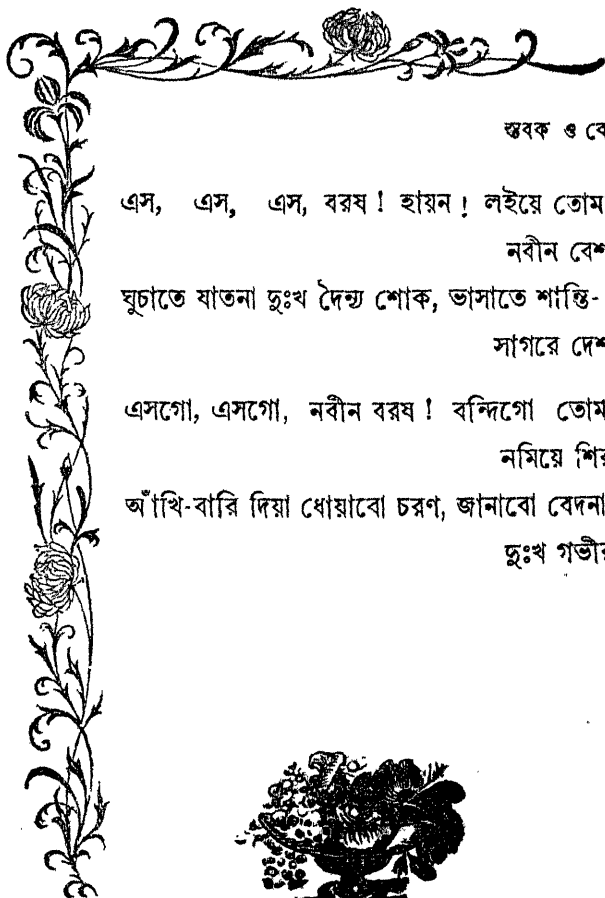 স্তবক ও
এস, এস, এস, বরষ ! হায়ন ! লইয়ে তোম
নবীন বেশ
ঘুচাতে যাতনা দুঃখ দৈন্য শোক, ভাসাতে শান্তি-
সাগরে দেশ
এসগো, এসগো, নবীন বরষ ! বন্দিগো তোম
নমিয়ে শির
আঁখি-বারি দিয়া ধোয়াবো চরণ, জানাবো বেদনা
দুঃখ গভীর